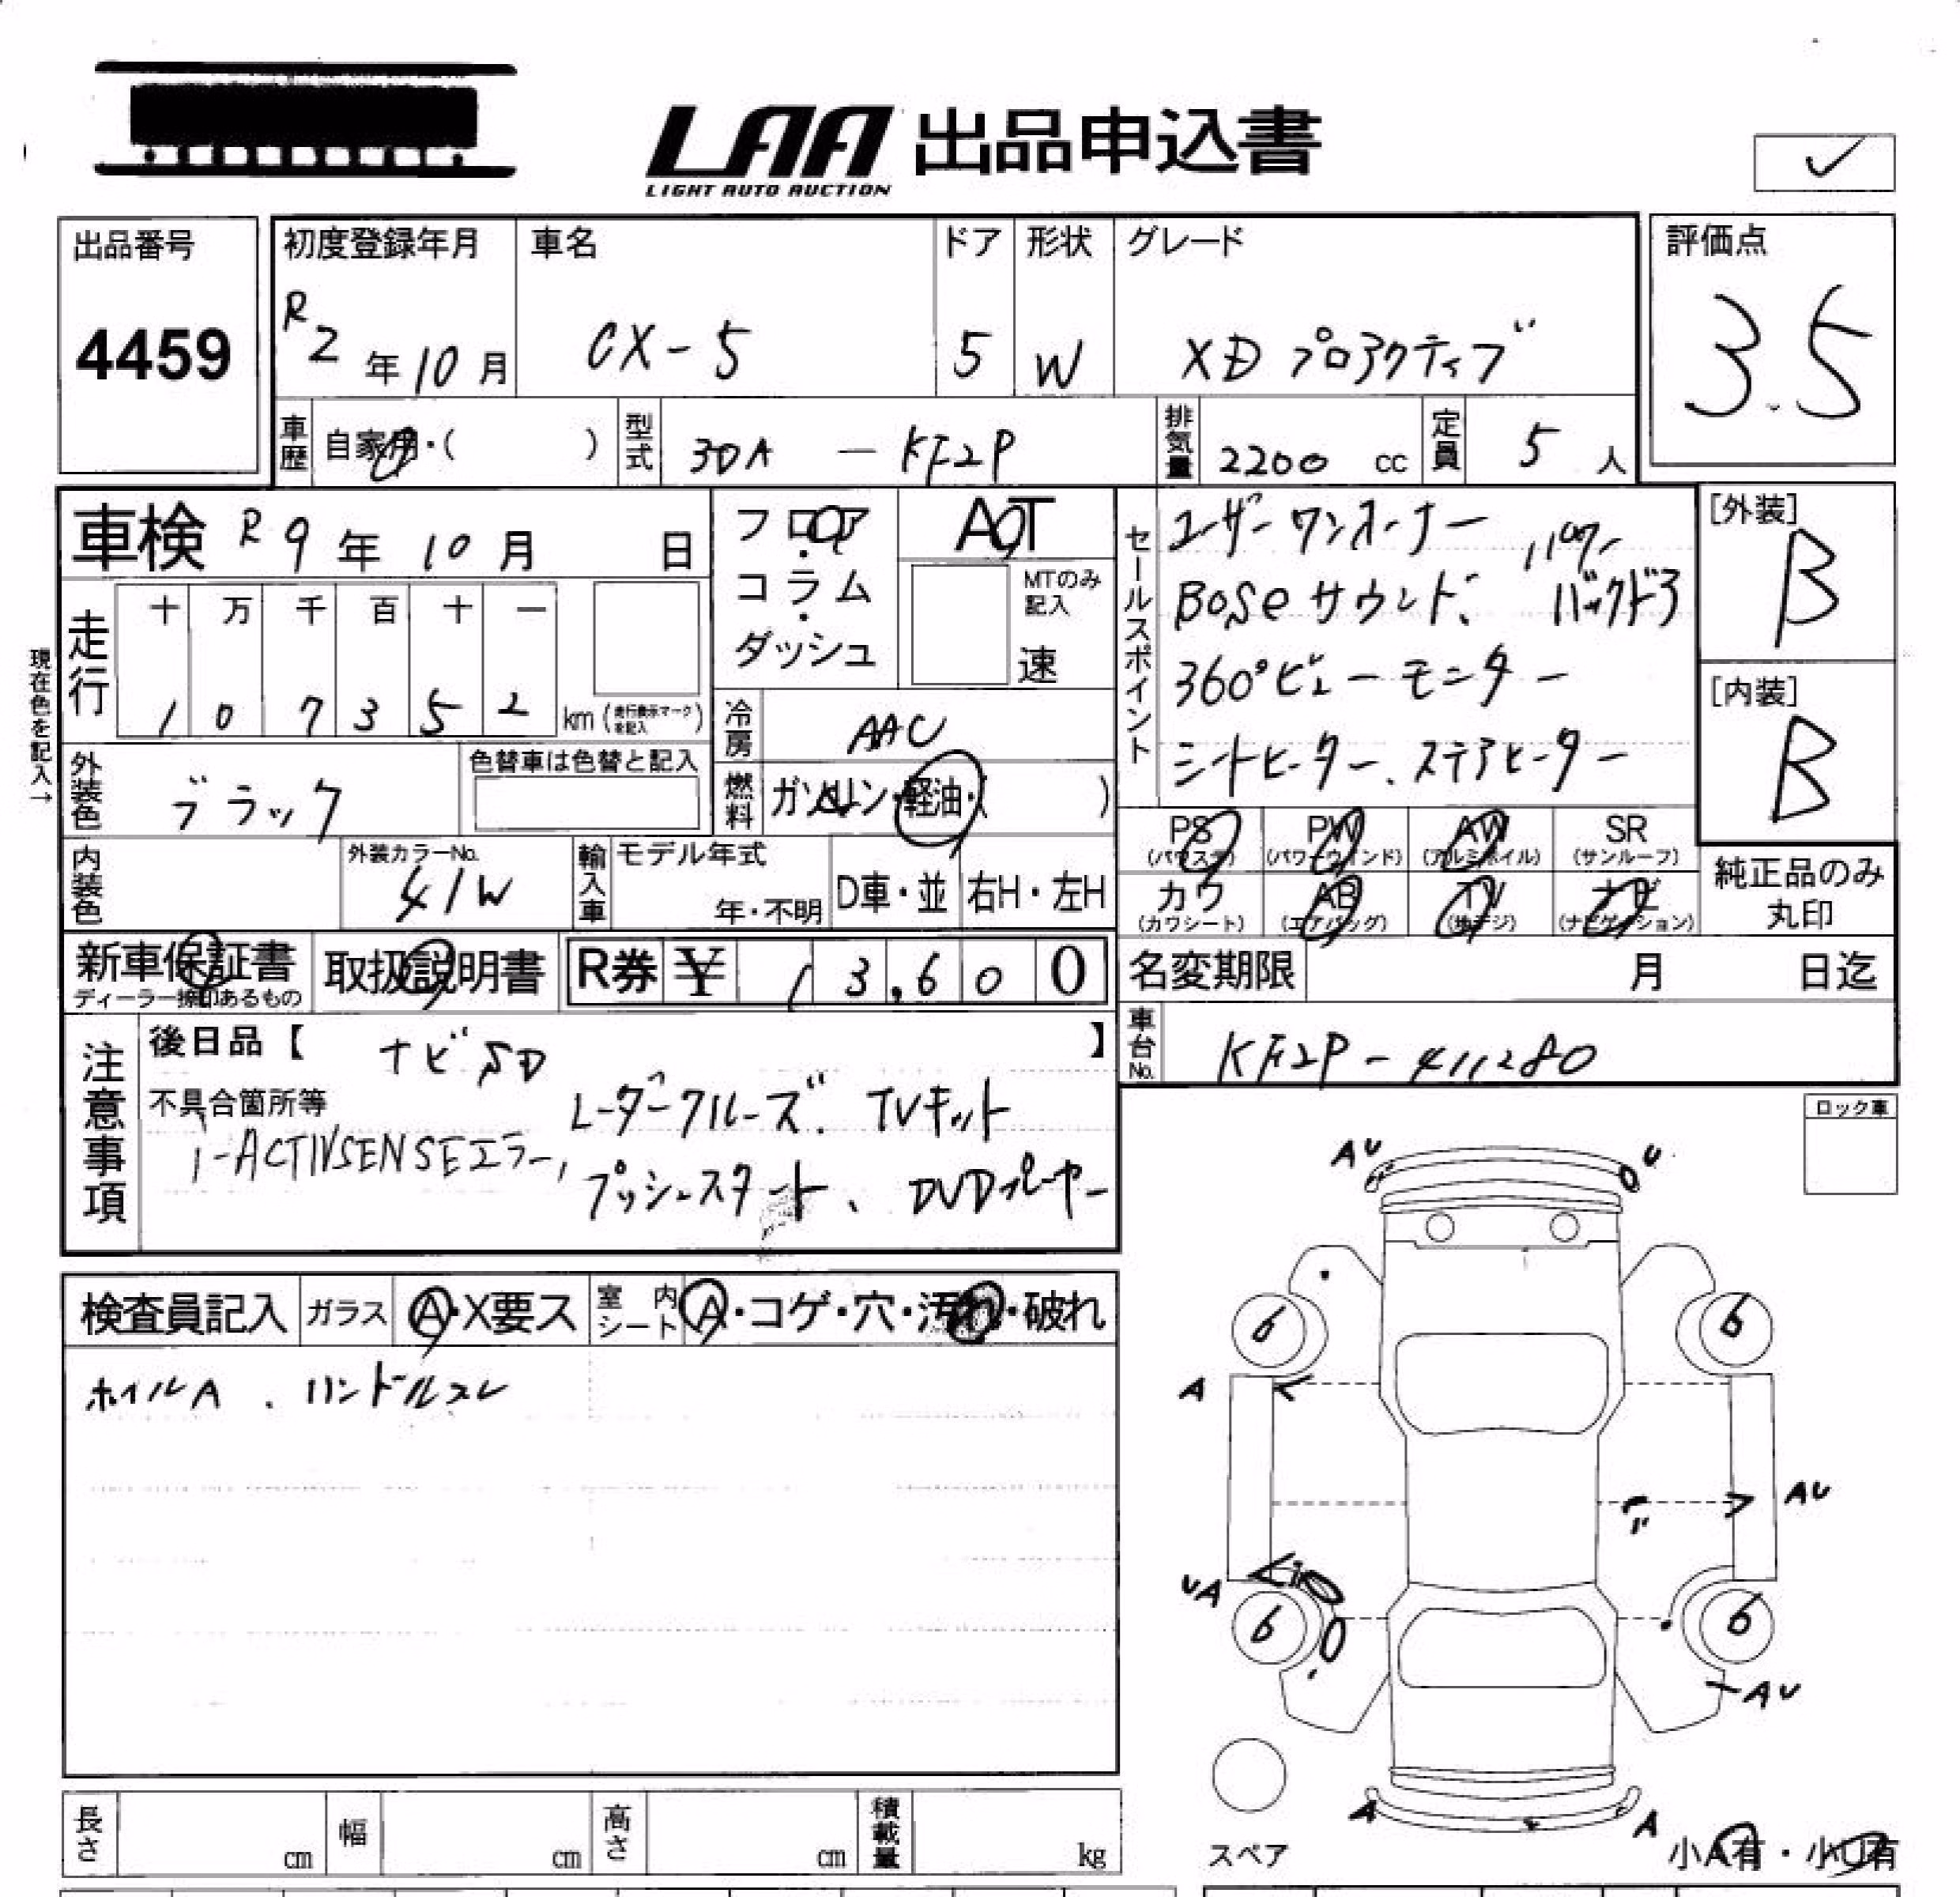 LAA 出品申込書
LIGHT AUTO AUCTION
✓
出品番号
4459
初度登録年月
R2年10月
車名
CX-5
ドア
5
形状
W
グレード
XD プロアクティブ
評価点
3.5
車歴
自家用・( )
型式
3DA — KF2P
排気量
2200 cc
定員
5 人
車検 R9年10月 日
フロア・コラム・ダッシュ
AT
MTのみ記入
速
走行
十 万 千 百 十 一
1 0 7 3 5 2 km (走行表示マークを記入)
現在色を記入→
冷房
AAC
外装色
ブラック
色替車は色替と記入
燃料
ガソリン・軽油・( )
内装色
外装カラーNo.
41W
輸入車
モデル年式
年・不明
D車・並
右H・左H
セールスポイント
ユーザーワンオーナー
パワーバックドア
BOSEサウンド、
360°ビューモニター
シートヒーター、ステアヒーター
[外装]
B
[内装]
B
PS (パワステ)
PW (パワーウィンド)
AW (アルミホイル)
SR (サンルーフ)
カワ (カワシート)
AB (エアバッグ)
TV (地デジ)
ナビ (ナビゲーション)
純正品のみ
丸印
新車保証書
ディーラー捺印あるもの
取扱説明書
R券 ¥ 13,600
名変期限 月 日迄
車台No.
KF2P-411280
注意事項
後日品【 ナビSD 】
不具合箇所等
i-ACTIVSENSEエラー,
レーダークルーズ、TVキット
プッシュスタート、DVDプレーヤー
ロック車
検査員記入
ガラス
A・X要ス
室内シート
A・コゲ・穴・汚れ・破れ
ホイルA、ハンドルスレ
AU
U
6
6
A
AU
UA
6
6
AU
A
A
スペア
小A有・小U有
長さ cm
幅 cm
高さ cm
積載量 kg